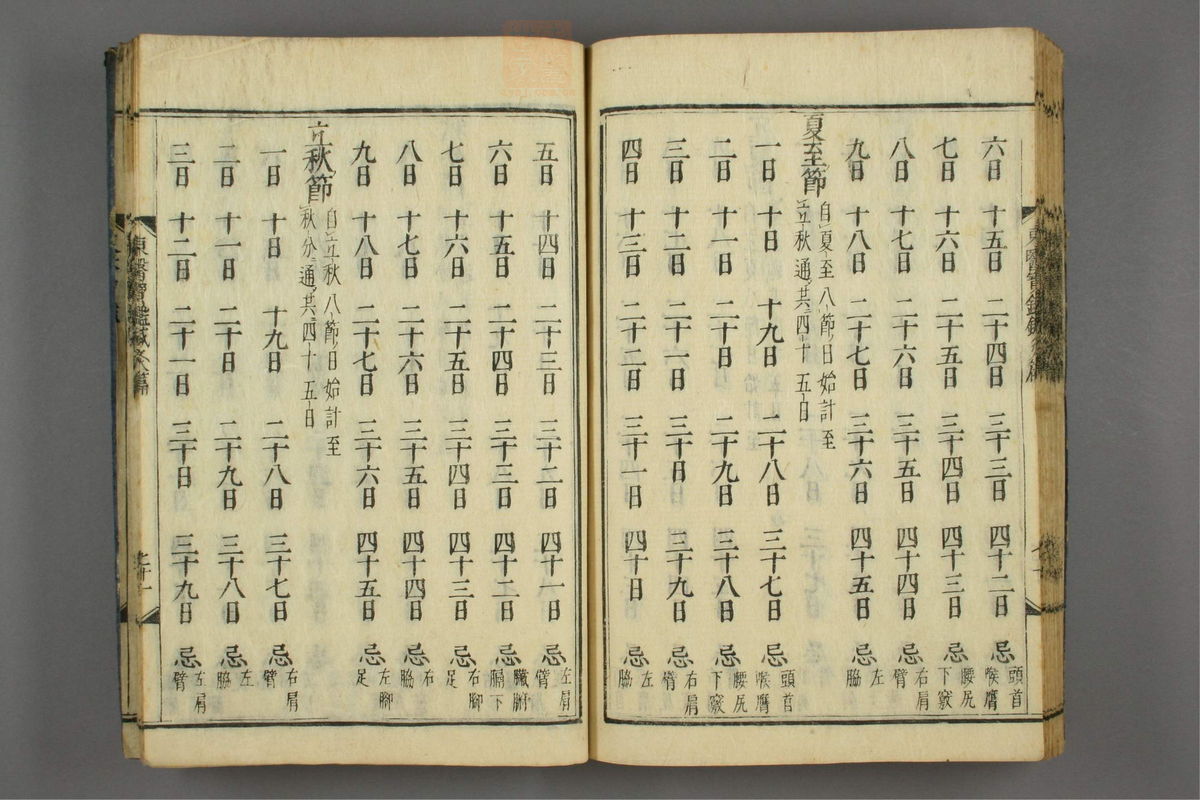 六日 十五日 二十四日 三十三日 四十二日 忌 頭首喉膺
七日 十六日 二十五日 三十四日 四十三日 忌 腰尻下竅
八日 十七日 二十六日 三十五日 四十四日 忌 右肩臂
九日 十八日 二十七日 三十六日 四十五日 忌 左脇
夏至節 自夏至八節日始計至
立秋通共四十五日
一日 十日 十九日 二十八日 三十七日 忌 頭首喉膺
二日 十一日 二十日 二十九日 三十八日 忌 腰尻下竅
三日 十二日 二十一日 三十日 三十九日 忌 右肩臂
四日 十三日 二十二日 三十一日 四十日 忌 左脇
五日 十四日 二十三日 三十二日 四十一日 忌 左肩臂
六日 十五日 二十四日 三十三日 四十二日 忌 臟腑膈下
七日 十六日 二十五日 三十四日 四十三日 忌 右腳足
八日 十七日 二十六日 三十五日 四十四日 忌 右脇
九日 十八日 二十七日 三十六日 四十五日 忌 左腳足
立秋節 自立秋八節日始計至
秋分通共四十五日
一日 十日 十九日 二十八日 三十七日 忌 右肩臂
二日 十一日 二十日 二十九日 三十八日 忌 左脇
三日 十二日 二十一日 三十日 三十九日 忌 左肩臂
東醫寶鑑鍼灸篇